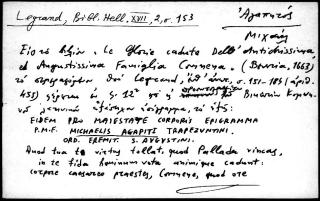 Legrand, Bibl. Hell. XVII, 2, σ. 153
Ἀγαπητός
Μιχαήλ
Εἰς τὸ βιβλίον: Le Glorie cadute dell' Antichissima
ed Augustissima Famiglia Comnena. (Venezia, 1663)
τὸ περιγραφόμενον ὑπὸ Legrand, σ. 151-185 (ἀριθ.
455) γέγονεν ἐν σ. 12
ἐπίγραμμα, τὸ ἑξῆς:
EIDEM PRO MAIESTATE CORPORIS EPIGRAMMA
P.M.F. MICHAELIS AGAPITI TRAPEZUNTINI.
ORD. EREMIT. S. AUGUSTINI.
Quod tua te virtus tollat, quod Pallada vincas,
in te fida hominum vota animique cadunt:
corpore caesareo praestas, Comnene, quod ore